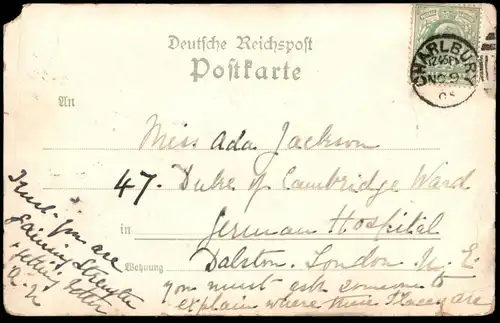 Deutsche Reichspost
Postkarte
CHARLBURY
12.45PM
NO 9
05
An
Miss Ada Jackson
47. Duke of Cambridge Ward
in German Hospital
Wohnung Dalston. London N. E.
you must get someone to
explain where these places are
Trust you are
gaining strength
& getting better